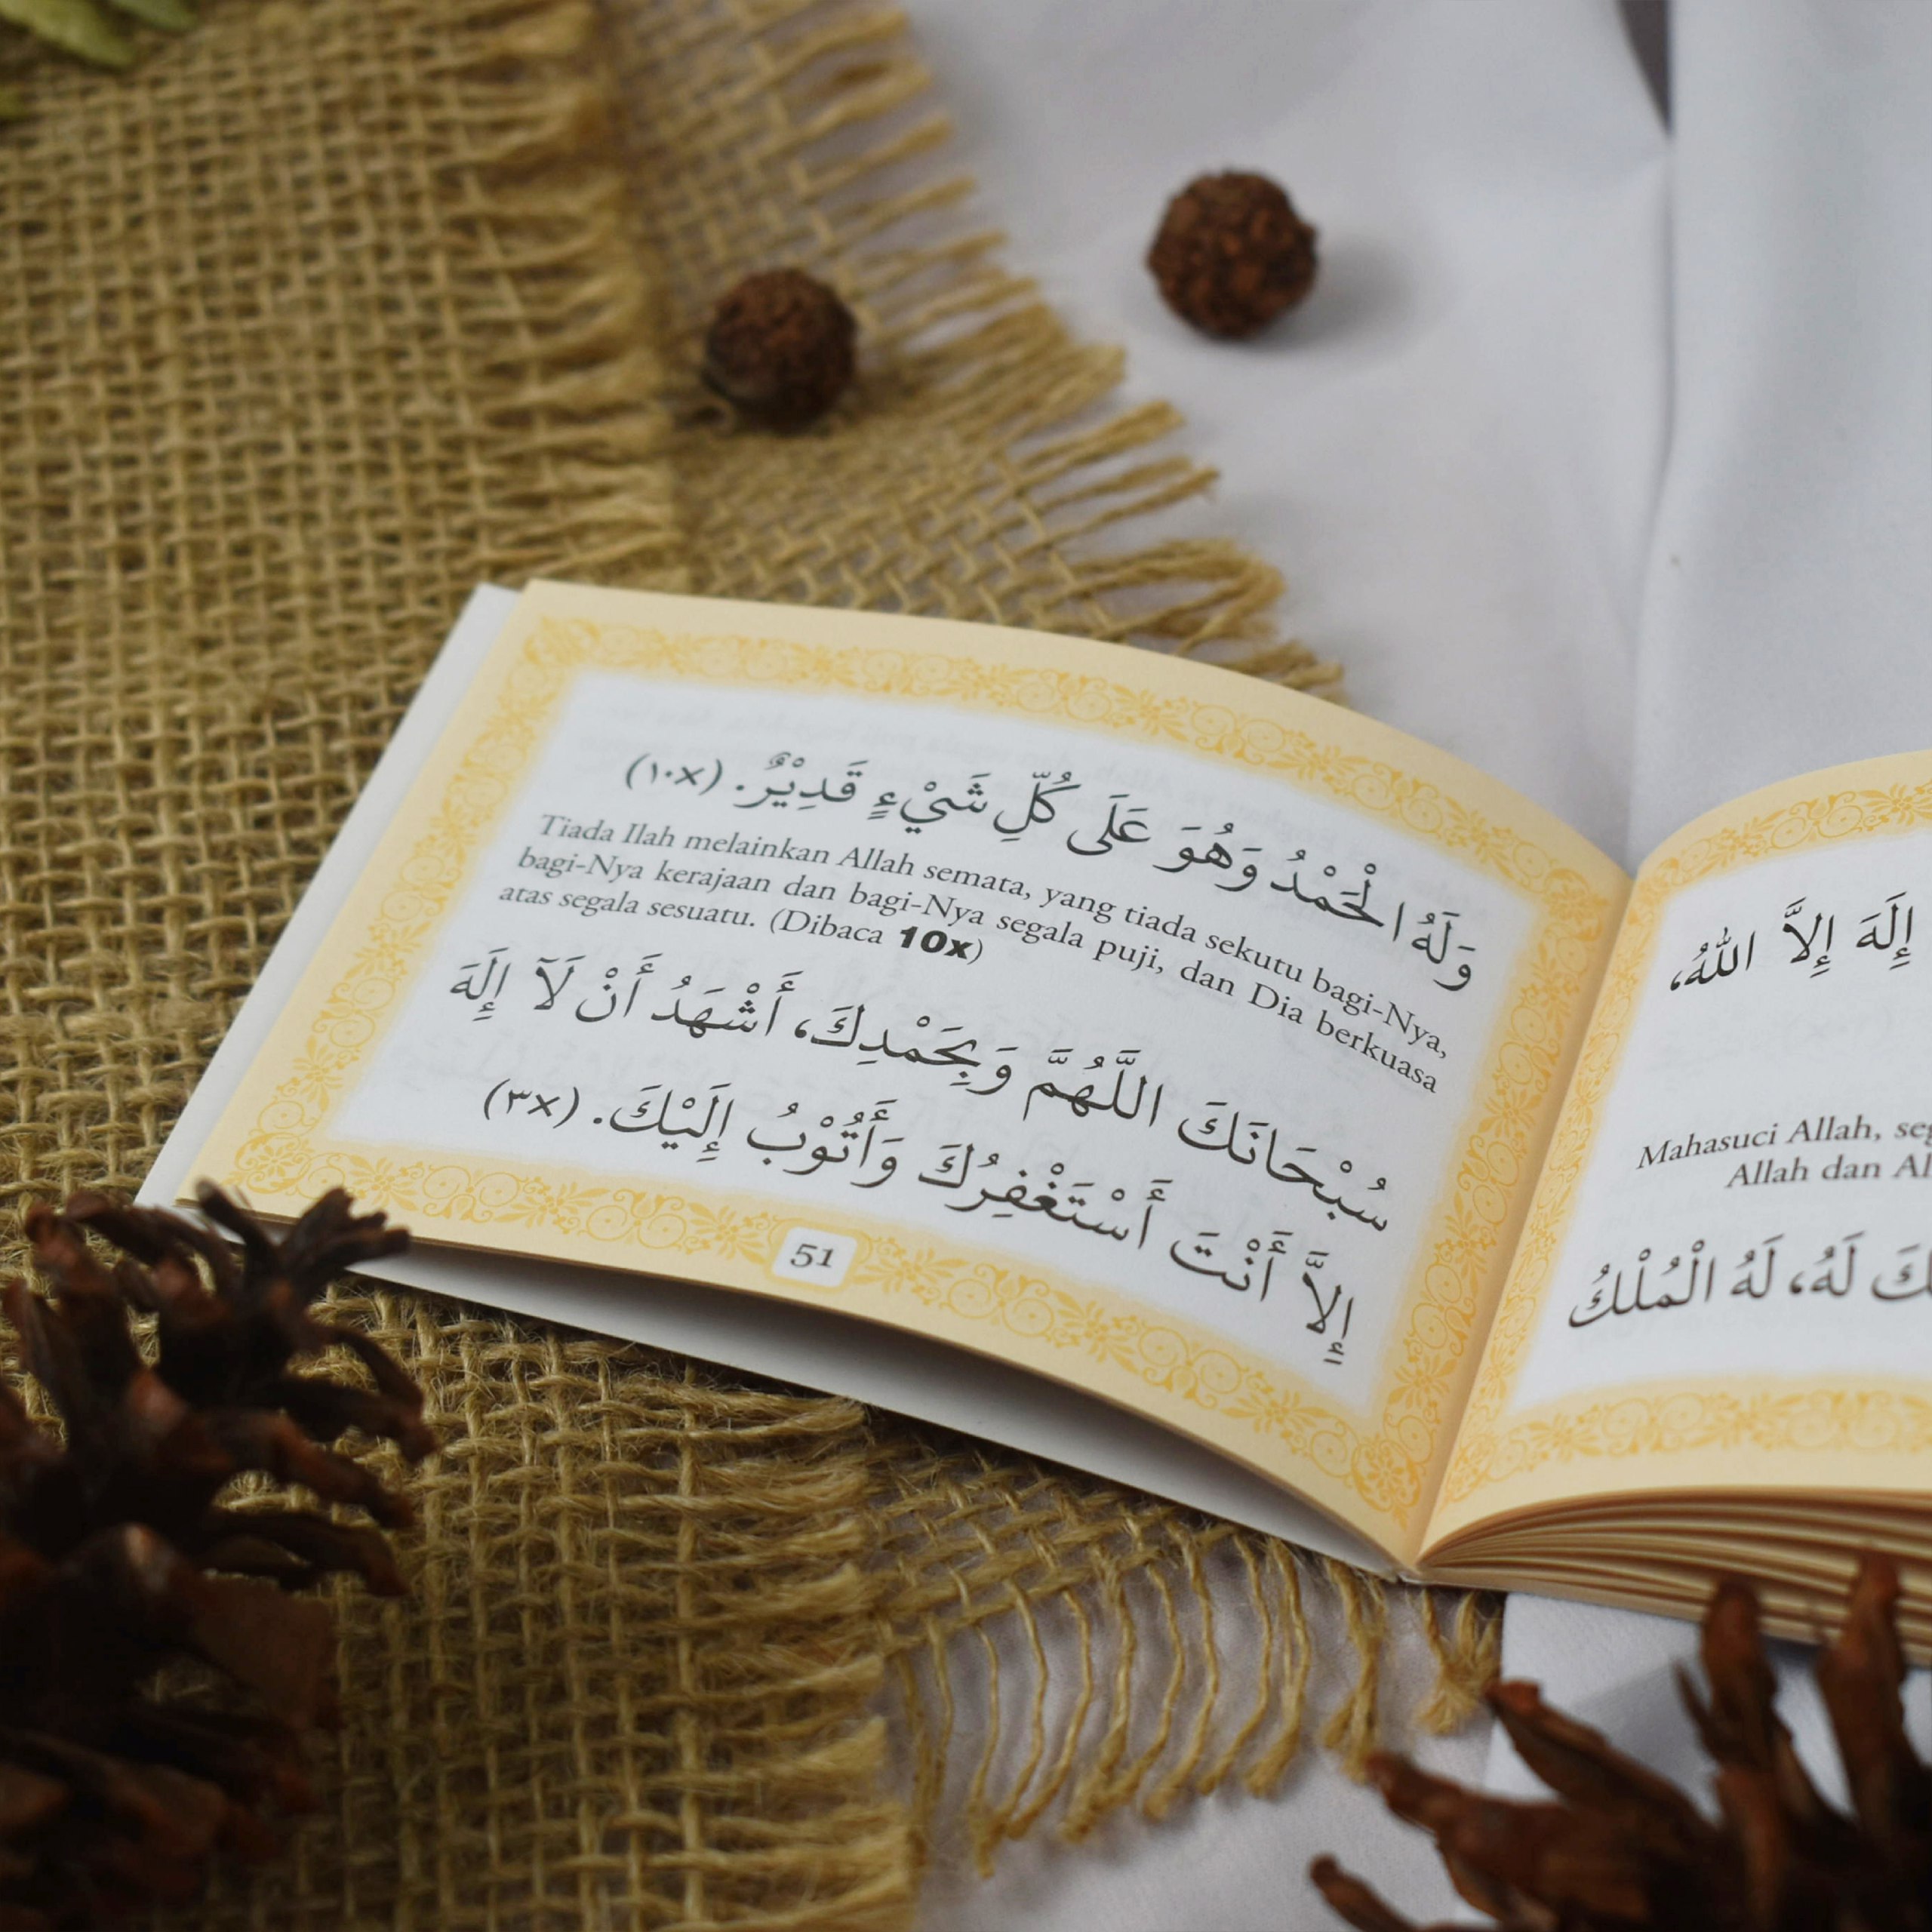 وَلَهُ الْحَمْدُ وَهُوَ عَلَى كُلِّ شَيْءٍ قَدِيْرٌ. (١٠x)
Tiada Ilah melainkan Allah semata, yang tiada sekutu bagi-Nya,
bagi-Nya kerajaan dan bagi-Nya segala puji, dan Dia berkuasa
atas segala sesuatu. (Dibaca 10x)
سُبْحَانَكَ اللَّهُمَّ وَبِحَمْدِكَ، أَشْهَدُ أَنْ لَآ إِلَهَ
إِلاَّ أَنْتَ أَسْتَغْفِرُكَ وَأَتُوْبُ إِلَيْكَ. (٣x)
51
إِلَهَ إِلاَّ اللهُ،
Mahasuci Allah,
Allah dan
لَهُ، لَهُ الْمُلْكُ